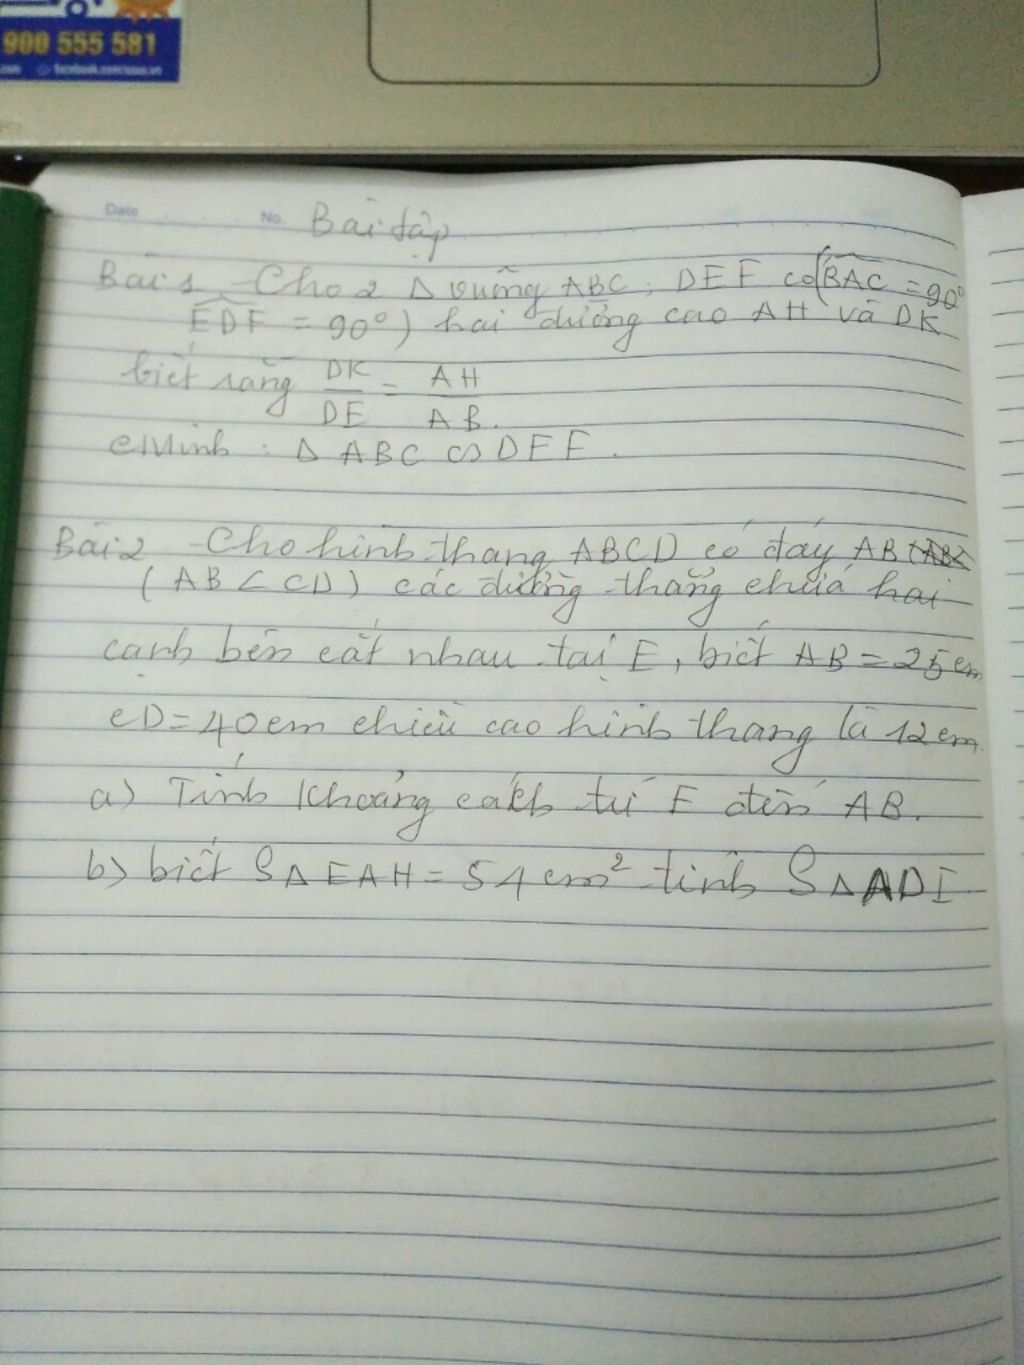 900 555 581
Date No. Bài tập
Bài 1 - Cho 2 Δ vuông ABC; DEF có (BAC = 90°
EDF = 90°) hai đường cao AH và DK
biết rằng DK/DE = AH/AB.
CMinh : Δ ABC ∽ DEF.
Bài 2 - Cho hình thang ABCD có đáy AB
(AB < CD) các đường thẳng chứa hai
cạnh bên cắt nhau tại E, biết AB = 25cm
CD = 40cm chiều cao hình thang là 12cm.
a) Tính khoảng cách từ E đến AB.
b) biết SΔEAH = 54cm² tính SΔADI